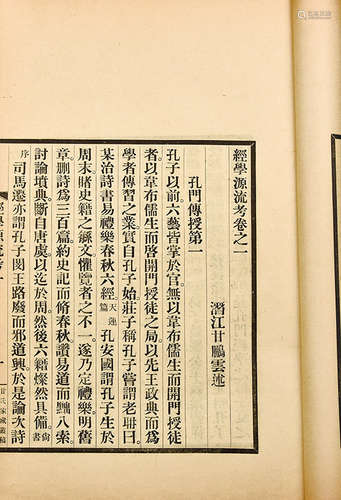 經學源流考卷之一
潛江甘鵬雲述
孔門傳授第一
孔子以前六藝皆掌於官無以韋布儒生而開門授徒
者以韋布儒生而啓開門授徒之局以先王政典而爲
學者傳習之業實自孔子始莊子稱孔子嘗謂老聃曰
某治詩書易禮樂春秋六經天運篇孔安國謂孔子生於
周末睹史籍之煩文懼覽者之不一遂乃定禮樂明舊
章刪詩爲三百篇約史記而脩春秋讚易道而黜八索
討論墳典斷自唐虞以迄於周然後六籍燦然具備尙書
序司馬遷亦謂孔子閔王路廢而邪道興於是論次詩
經學源流考
一